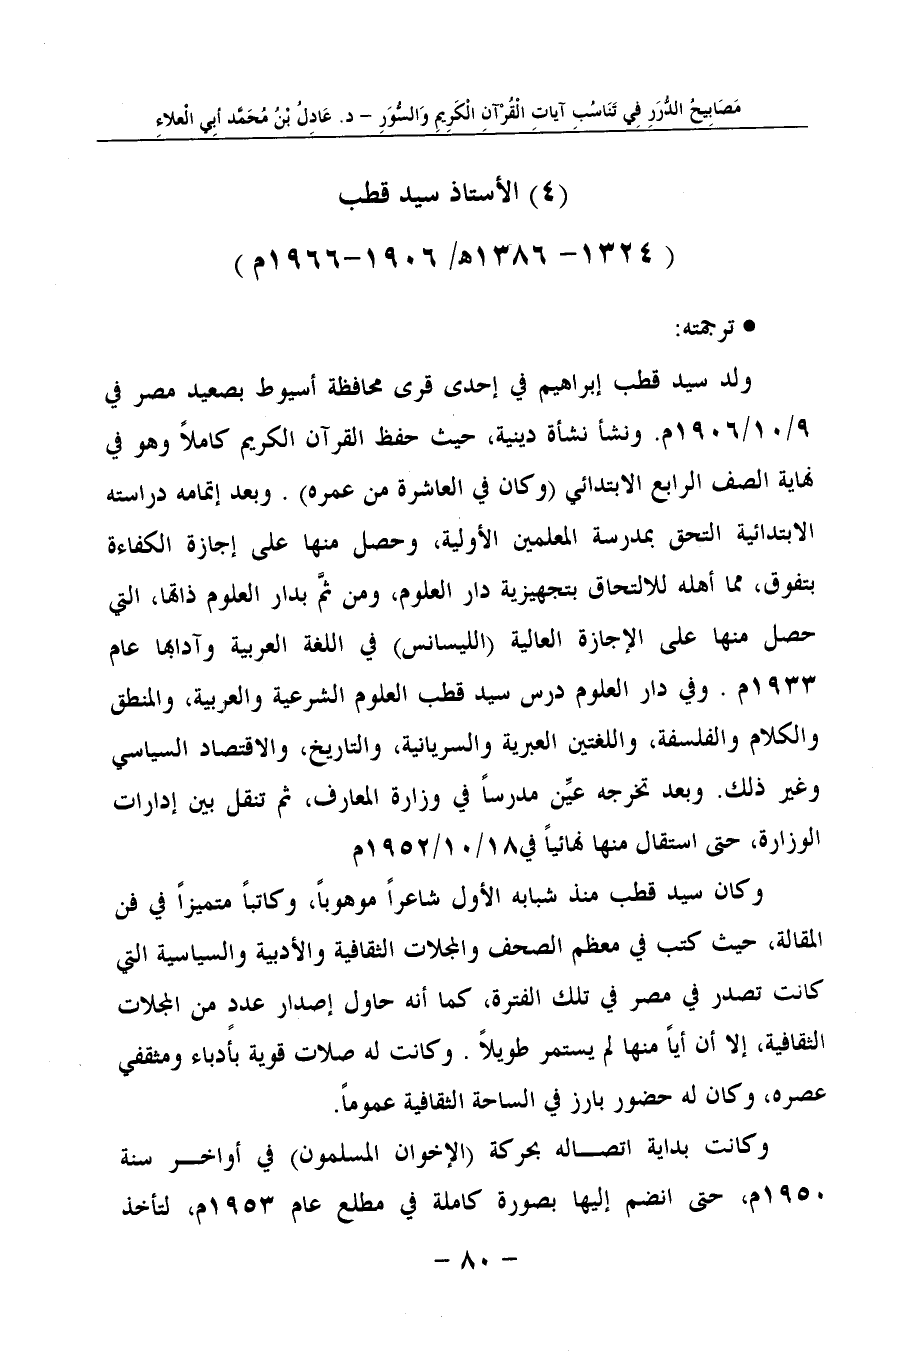 مَصَابِيحُ الدُّرَرِ فِي تَنَاسُبِ آيَاتِ الْقُرْآنِ الْكَرِيمِ وَالسُّوَرِ – د. عَادِلُ بْنُ مُحَمَّد أبي الْعلاءِ
(٤) الأستاذ سيد قطب
( ١٣٢٤– ١٣٨٦ه/ ١٩٠٦–١٩٦٦م )
● ترجمته:
ولد سيد قطب إبراهيم في إحدى قرى محافظة أسيوط بصعيد مصر في
١٩٠٦/١٠/٩م. ونشأ نشأة دينية، حيث حفظ القرآن الكريم كاملاً وهو في
نهاية الصف الرابع الابتدائي (وكان في العاشرة من عمره) . وبعد إتمامه دراسته
الابتدائية التحق بمدرسة المعلمين الأولية، وحصل منها على إجازة الكفاءة
بتفوق، مما أهله للالتحاق بتجهيزية دار العلوم، ومن ثمَّ بدار العلوم ذاتها، التي
حصل منها على الإجازة العالية (الليسانس) في اللغة العربية وآدابها عام
١٩٣٣م . وفي دار العلوم درس سيد قطب العلوم الشرعية والعربية، والمنطق
والكلام والفلسفة، واللغتين العبرية والسريانية، والتاريخ، والاقتصاد السياسي
وغير ذلك. وبعد تخرجه عيِّن مدرساً في وزارة المعارف، ثم تنقل بين إدارات
الوزارة، حتى استقال منها نهائياً في١٩٥٢/١٠/١٨م
وكان سيد قطب منذ شبابه الأول شاعراً موهوباً، وكاتباً متميزاً في فن
المقالة، حيث كتب في معظم الصحف والمجلات الثقافية والأدبية والسياسية التي
كانت تصدر في مصر في تلك الفترة، كما أنه حاول إصدار عددٍ من المجلات
الثقافية، إلا أن أياً منها لم يستمر طويلاً . وكانت له صلات قوية بأدباء ومثقفي
عصره، وكان له حضور بارز في الساحة الثقافية عموماً.
وكانت بداية اتصـــاله بحركة (الإخوان المسلمون) في أواخــر سنة
١٩٥٠م، حتى انضم إليها بصورة كاملة في مطلع عام ١٩٥٣م، لتأخذ
– ٨٠ –